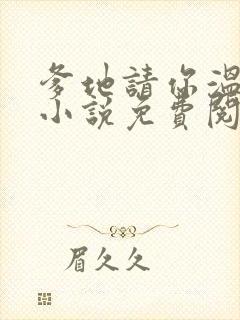 爹地請你溫
小說免費閱
眉久久